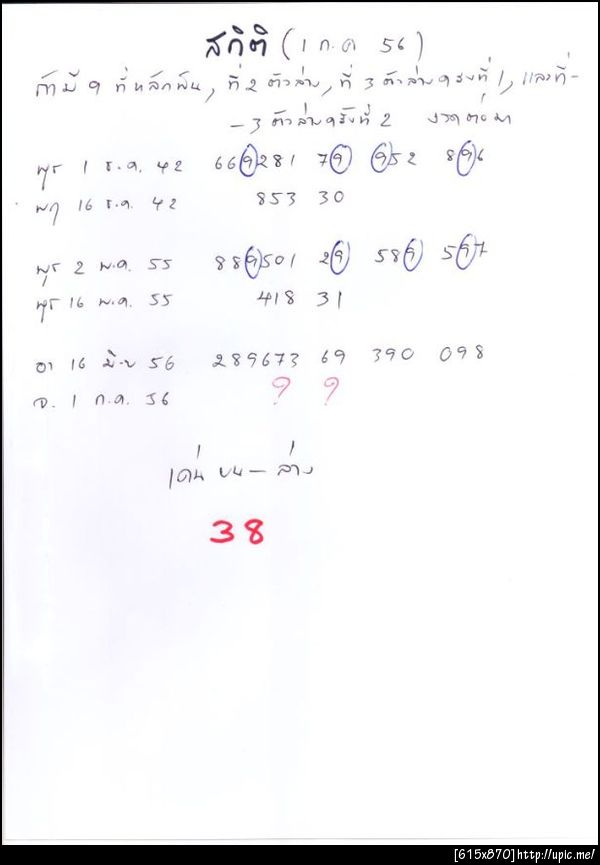 สถิติ (1 ก.ค 56)
ถ้ามี 9 ที่หลักพัน, ที่ 2 ตัวล่าง, ที่ 3 ตัวล่างครั้งที่ 1, และที่ -
- 3 ตัวล่างครั้งที่ 2 งวดต่อมา
พุธ 1 ธ.ค. 42 669281 79 952 896
พฤ 16 ธ.ค. 42 853 30
พุธ 2 พ.ค. 55 889501 29 589 597
พุธ 16 พ.ค. 55 418 31
อา 16 มิ.ย 56 289673 69 390 098
จ. 1 ก.ค. 56 ? ?
เด่น บน - ล่าง
38
[615x870]http://upic.me/